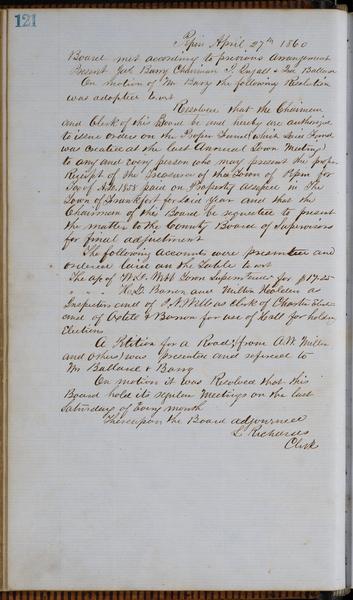 121
Pepin April 27th 1860
Board met according to previous arrangement
Present Geo Barry Chairman & Jno Ballance
On motion of Mr Barry the following Resolution
was adopted to wit
Resolved that the Chairman
and Clerk of this Board be and hereby are authorized
to issue orders on the Proper Fund (which said Fund
was created at the last Annual Town Meeting)
to any and every person who may present the proper
Receipt of the Treasurer of the Town of Pepin for
Tax of A.D. 1858 paid on Property assessed in the
Town of Frankfort for said year and that the
Chairman of this Board be requested to present
the matter to the County Board of Supervisors
for final adjustment
The following accounts were presented and
ordered laid on the Table to wit
The a/c of Webb Town Superintend for $17.25
" " H. D. Barron and Miller Holden as
Inspectors and of Wells as Clerk of Charter Elec
and of & Barron for use of Hall for holding
Elections
A Petition for a Road (from A.W. Miller
and others) was Presented and referred to
Mr Ballance & Barry
On motion it was Resolved that this
Board hold its regular Meetings on the last
Saturday of Every month
Thereupon the Board adjourned
L Richards
Clerk